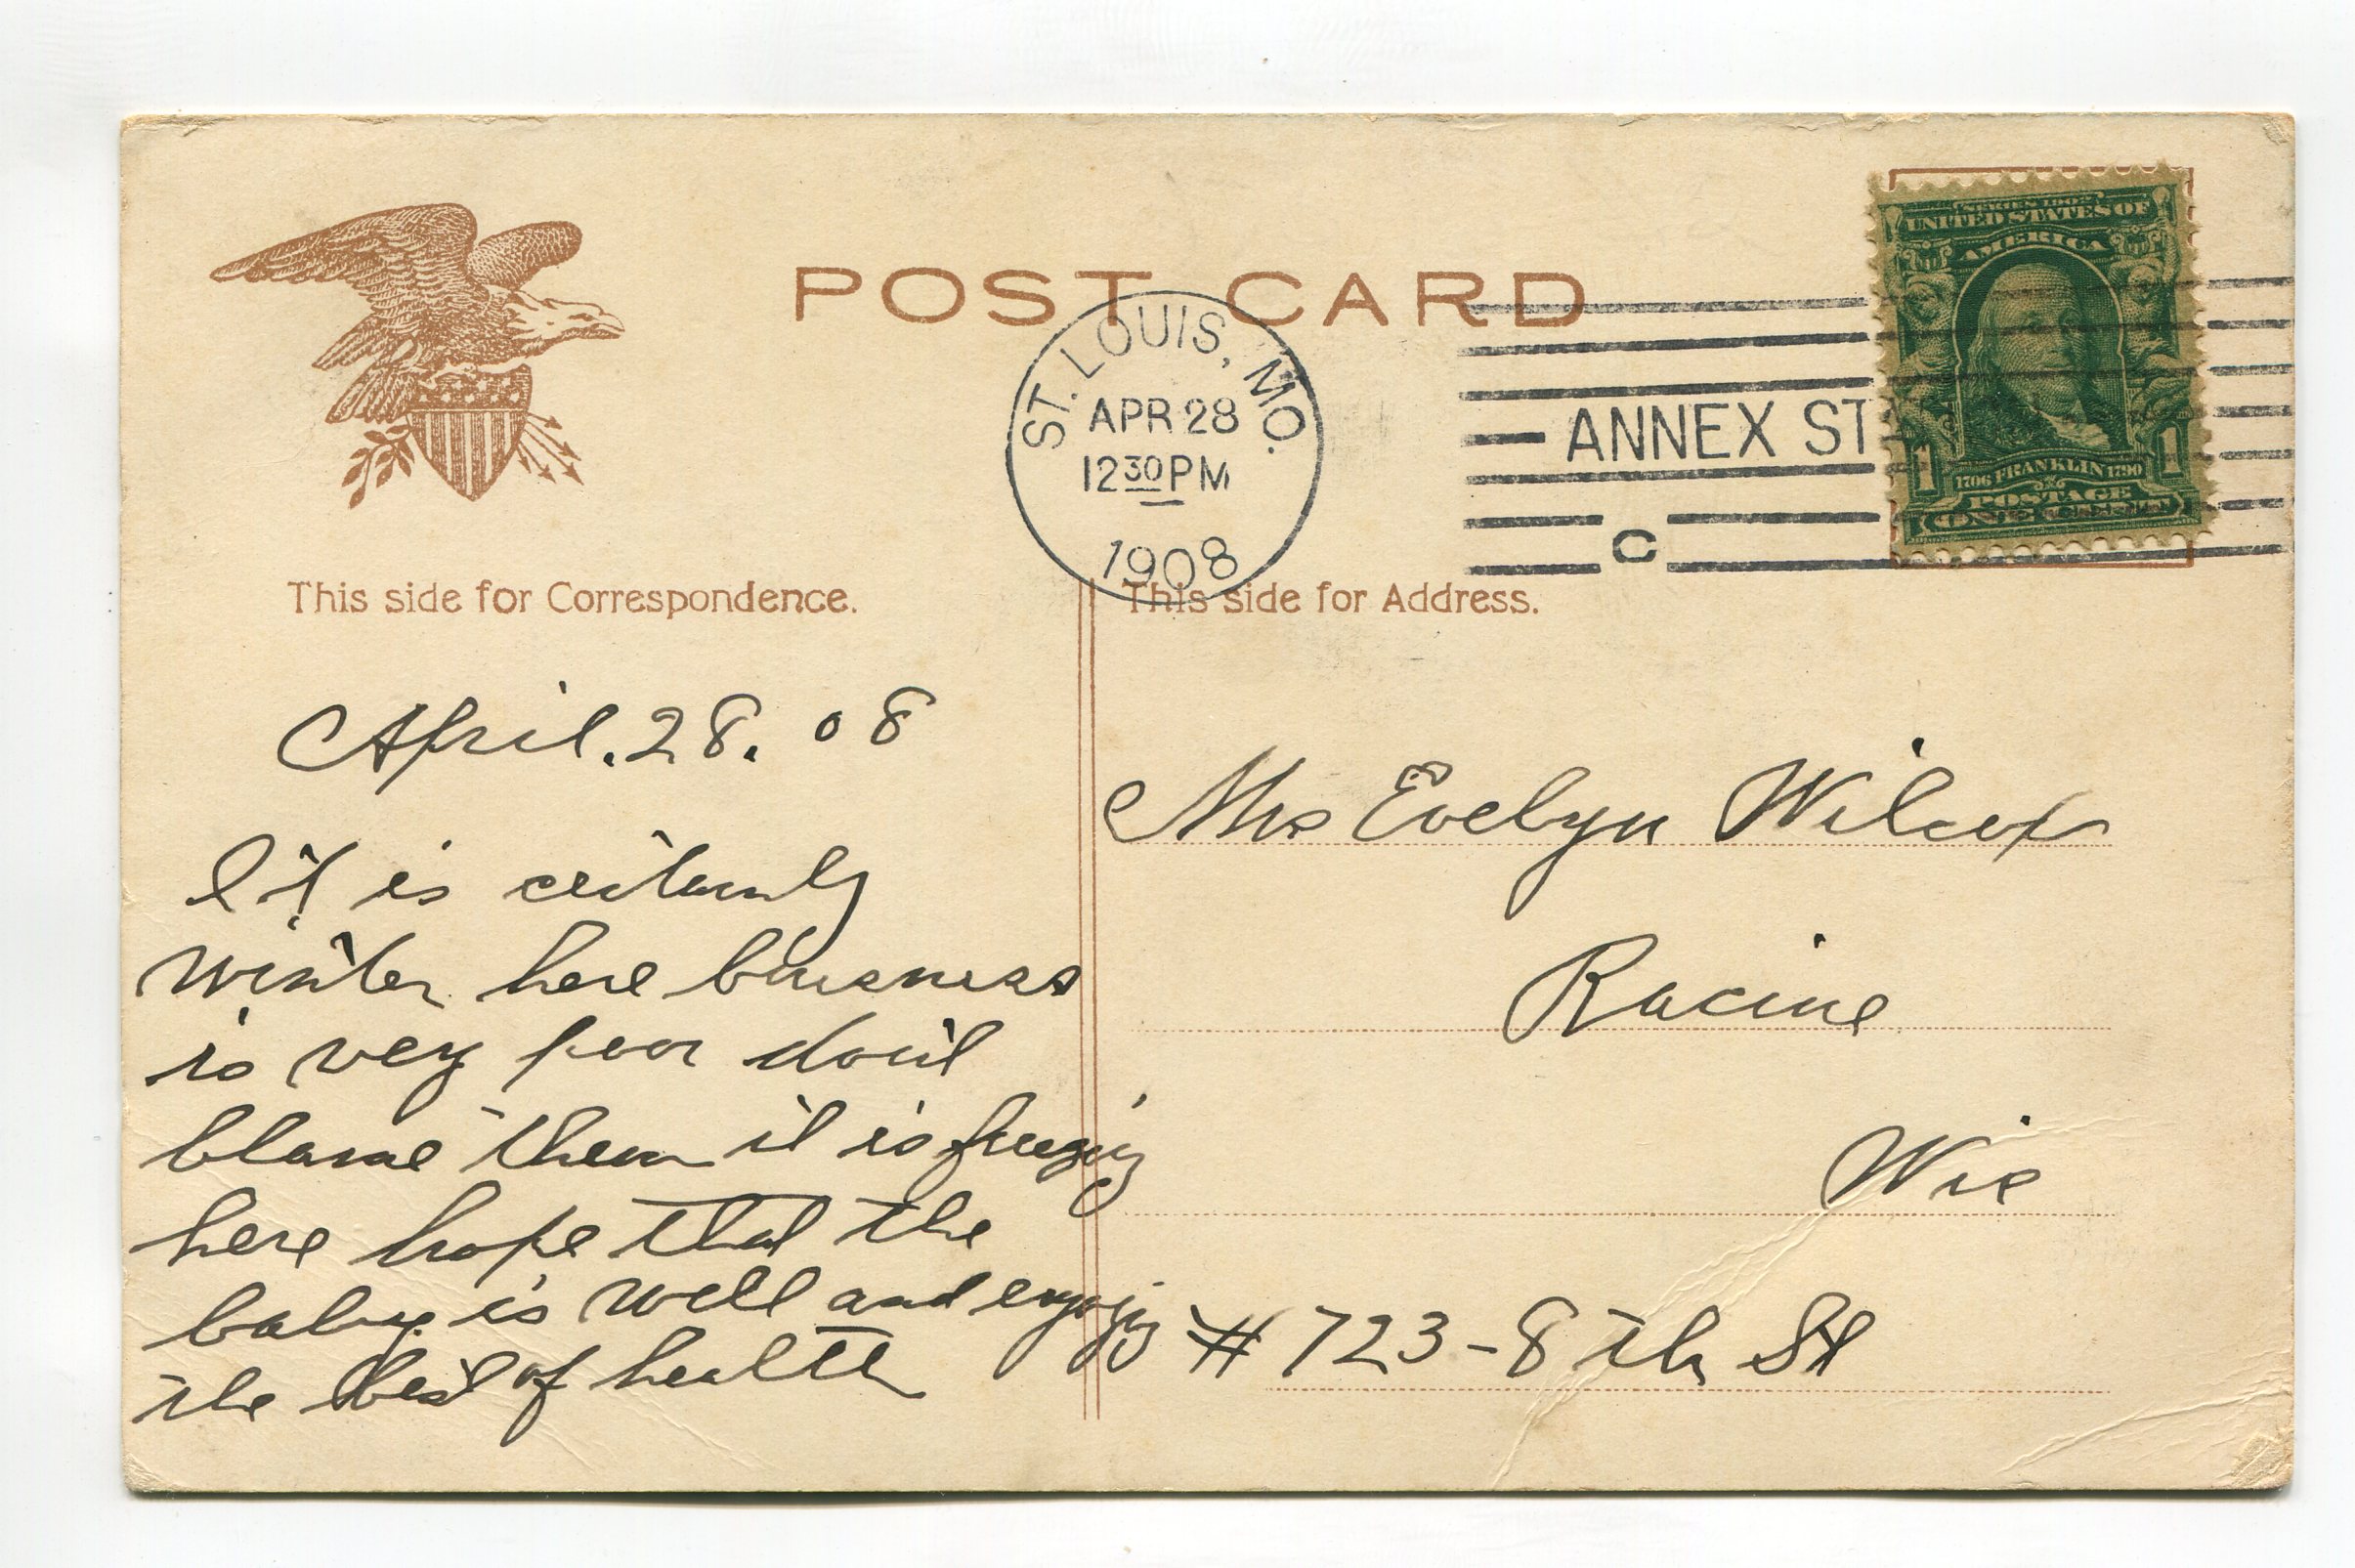 POST CARD
ST. LOUIS, MO.
APR 28
12 30 PM
1908
ANNEX ST
C
SERIES 1902
UNITED STATES OF
AMERICA
1706 FRANKLIN 1790
1 1
POSTAGE
ONE CENT
This side for Correspondence.
This side for Address.
April. 28. 08
It is certainly
winter here buisness
is very poor dont
blame them it is freezing
here hope that the
baby is well and enjoying
the best of health
Mrs Evelyn Wilcox
Racine
Wis
# 723-8 th St